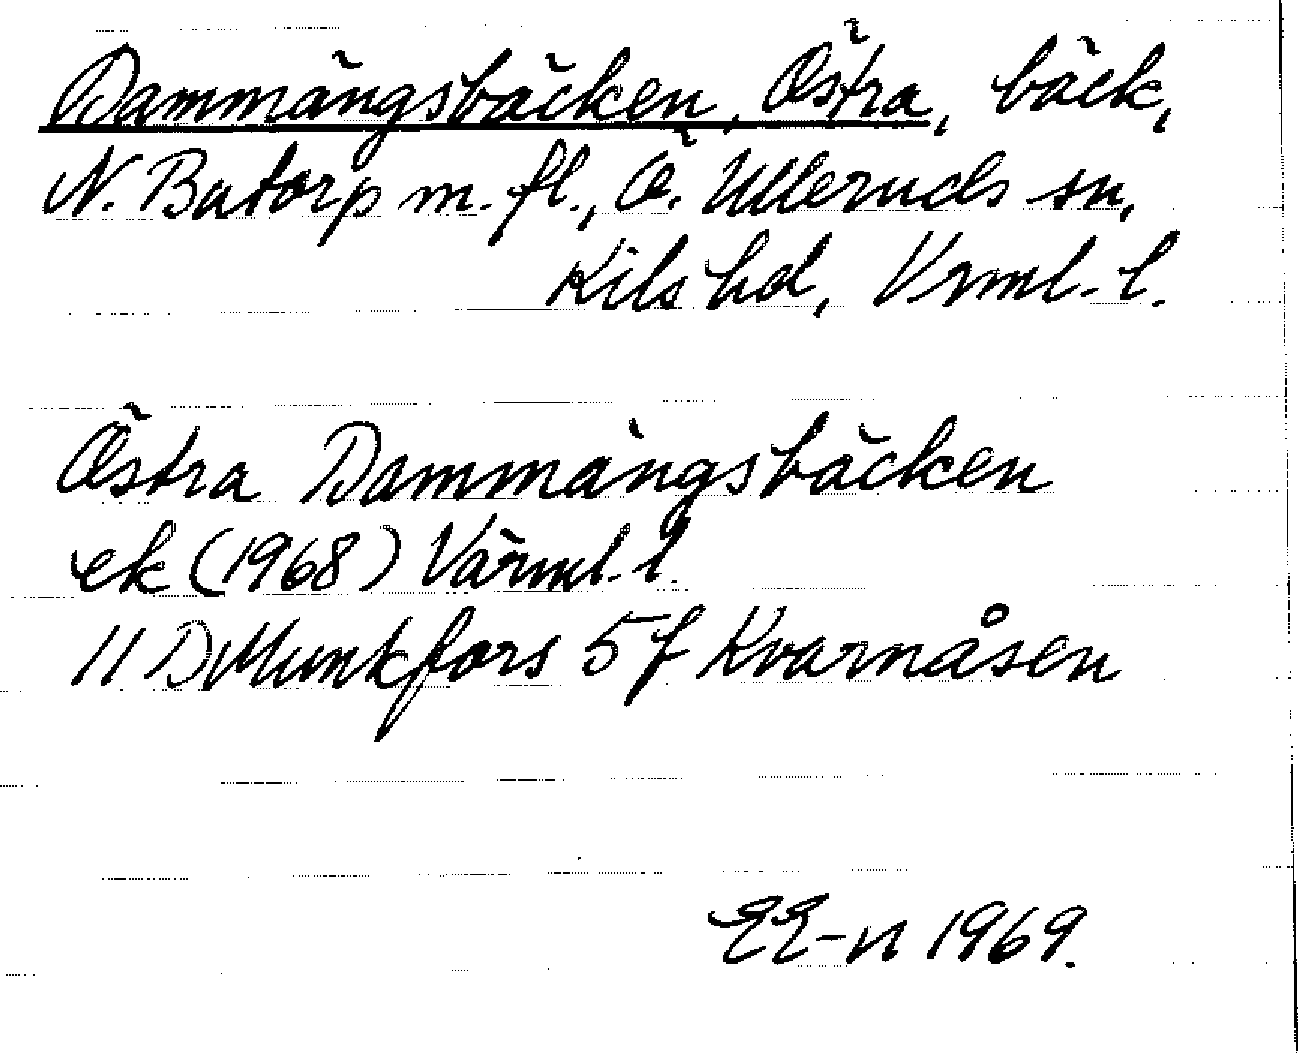 Dammängsbäcken, Östra, bäck,
N. Batorp m. fl., Ö. Ulleruds sn,
Kils hd, Vrml. l.
Östra Dammängsbäcken
ek (1968) Värml. l.
11 D Munkfors 5 f Kvarnåsen
EE-n 1969.